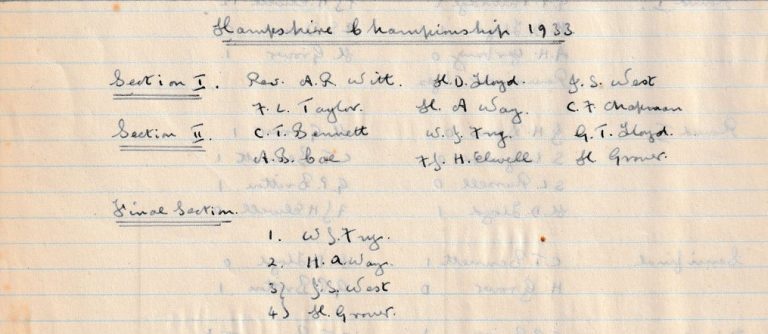 Hampshire Championship 1933
Section I. Rev. A.R. Witt. H.D. Lloyd. J.S. West
F. L. Taylor. H. A Way. C. F. Chapman
Section II. C. T. Bennett W. J. Fry. G. T. Lloyd.
A. B. Coe F J. H. Elwell H. Grover.
Final Section.
1. W J. Fry.
2. H. A. Way.
3} J. S. West
4} H. Grover.